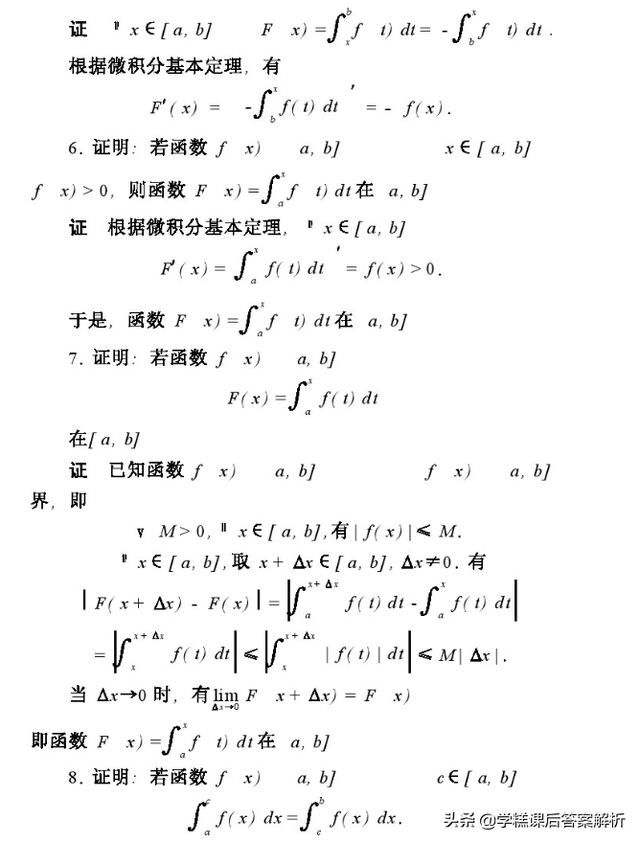 证 x∈[a, b] F x) =∫_x^b f t) dt = -∫_b^x f t) dt .
根据微积分基本定理, 有
F′(x) = -∫_b^x f(t) dt ′ = - f(x).
6. 证明: 若函数 f x) a, b] x∈[a, b]
f x) > 0, 则函数 F x) =∫_a^x f t) dt 在 a, b]
证 根据微积分基本定理, x∈[a, b]
F′(x) = ∫_a^x f(t) dt ′ = f(x) > 0.
于是, 函数 F x) =∫_a^x f t) dt 在 a, b]
7. 证明: 若函数 f x) a, b]
F(x) =∫_a^x f(t) dt
在[a, b]
证 已知函数 f x) a, b] f x) a, b]
界, 即
M > 0, x∈[a, b], 有 |f(x)| ≤ M.
x∈[a, b], 取 x + Δx∈[a, b], Δx≠0. 有
|F(x + Δx) - F(x)| = |∫_a^{x+Δx} f(t) dt -∫_a^x f(t) dt|
= |∫_x^{x+Δx} f(t) dt| ≤ |∫_x^{x+Δx} |f(t)| dt| ≤ M|Δx|.
当 Δx→0 时, 有 lim_{Δx→0} F x + Δx) = F x)
即函数 F x) =∫_a^x f t) dt 在 a, b]
8. 证明: 若函数 f x) a, b] c∈[a, b]
∫_a^c f(x) dx =∫_c^b f(x) dx.
头条 @学糕课后答案解析